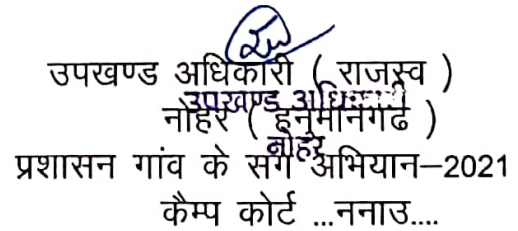 उपखण्ड अधिकारी ( राजस्व )
उपखण्ड अधिकारी
नोहर ( हनुमानगढ )
नोहर
प्रशासन गांव के संग अभियान–2021
कैम्प कोर्ट ...ननाउ....